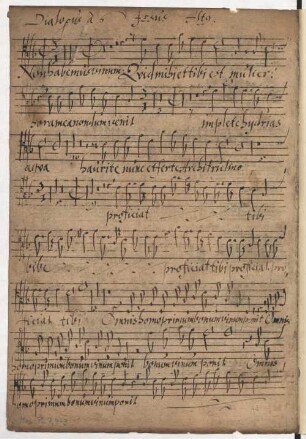 Dialogus à 5 Jesus Alto.
Non habemus vinum Quid mihi et tibi est mulier:
hora mea nondum venit implete hydrias
aqua haurite nunc et ferte Architriclino
proficiat tibi
bibe proficiat tibi proficiat pro
ficiat tibi Omnis homo primum bonum vinum ponit Omnis
homo primum bonum vinum ponit bonum vinum ponit Omnis
homo primum bonum vinum ponit